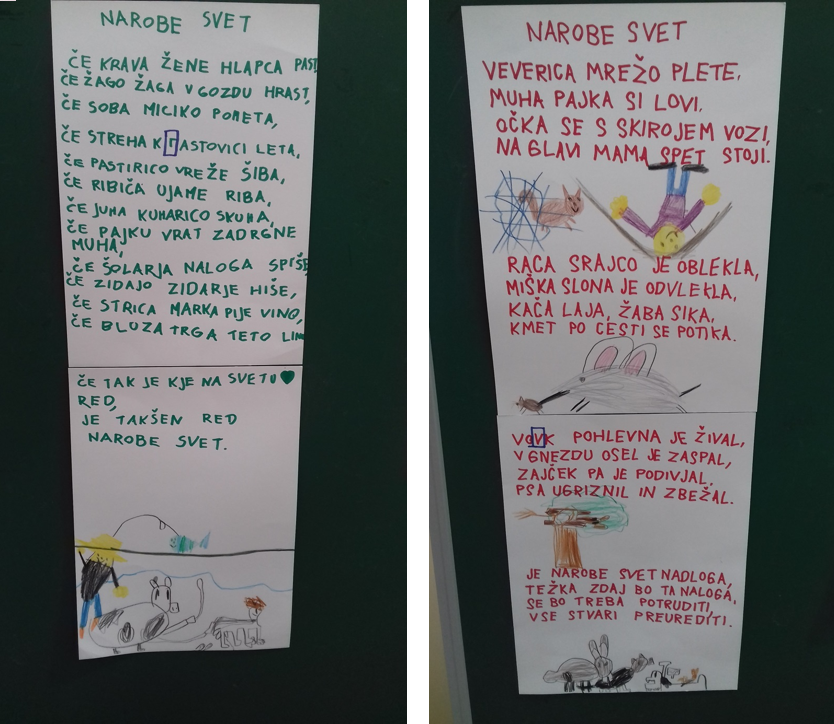 NAROBE SVET
ČE KRAVA ŽENE HLAPCA PAST
ČE ŽAGO ŽAGA V GOZDU HRAST,
ČE SOBA MICIKO POMETA,
ČE STREHA K LASTOVICI LETA,
ČE PASTIRICO VREŽE ŠIBA,
ČE RIBIČA UJAME RIBA,
ČE JUHA KUHARICO SKUHA,
ČE PAJKU VRAT ZADRGNE
MUHA,
ČE ŠOLARJA NALOGA SPIŠE
ČE ZIDAJO ZIDARJE HIŠE,
ČE STRICA MARKA PIJE VINO,
ČE BLUZA TRGA TETO
ČE TAK JE KJE NA SVETU
RED,
JE TAKŠEN RED
NAROBE SVET.
NAROBE SVET
VEVERICA MREŽO PLETE,
MUHA PAJKA SI LOVI.
OČKA SE S SKIROJEM VOZI,
NA GLAVI MAMA SPET STOJI.
RACA SRAJCO JE OBLEKLA,
MIŠKA SLONA JE ODVLEKLA,
KAČA LAJA, ŽABA SIKA,
KMET PO CESTI SE POTIKA.
VOVK POHLEVNA JE ŽIVAL,
V GNEZDU OSEL JE ZASPAL,
ZAJČEK PA JE PODIVJAL.
PSA UGRIZNIL IN ZBEŽAL.
JE NAROBE SVET NADLOGA,
TEŽKA ZDAJ BO TA NALOGA,
SE BO TREBA POTRUDITI,
VSE STVARI PREUREDITI.